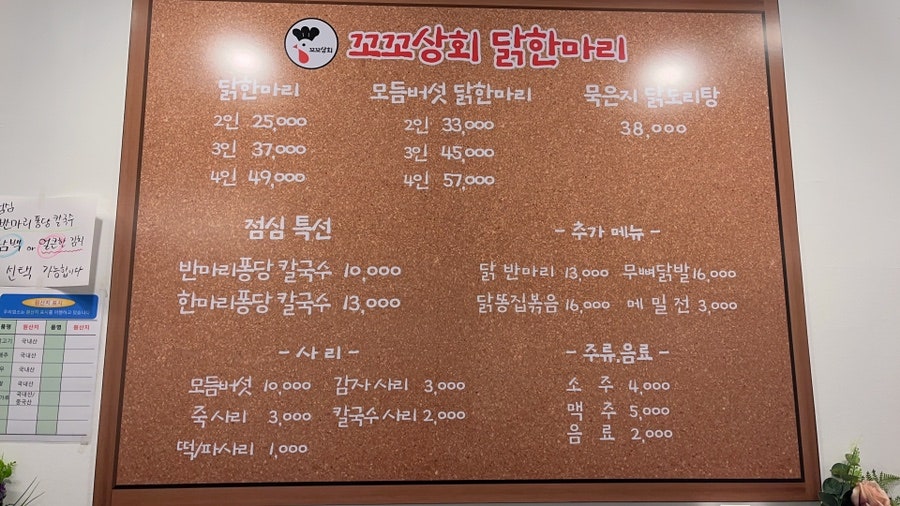 꼬꼬상회
꼬꼬상회 닭한마리
닭한마리
2인 25,000
3인 37,000
4인 49,000
모듬버섯 닭한마리
2인 33,000
3인 45,000
4인 57,000
묵은지 닭도리탕
38,000
점심 특선
반마리퐁당 칼국수 10,000
한마리퐁당 칼국수 13,000
- 추가 메뉴 -
닭 반마리 13,000 무뼈닭발 16,000
닭똥집볶음 16,000 메밀전 3,000
- 사리 -
모듬버섯 10,000 감자사리 3,000
죽사리 3,000 칼국수사리 2,000
떡/파사리 1,000
- 주류,음료 -
소 주 4,000
맥 주 5,000
음 료 2,000
반마리퐁당 칼국수
or 얼큰한 김치
선택 가능합니다
원산지 표시
원산지 품명 원산지
국내산
국내산
국내산
국내산
국내산/
중국산